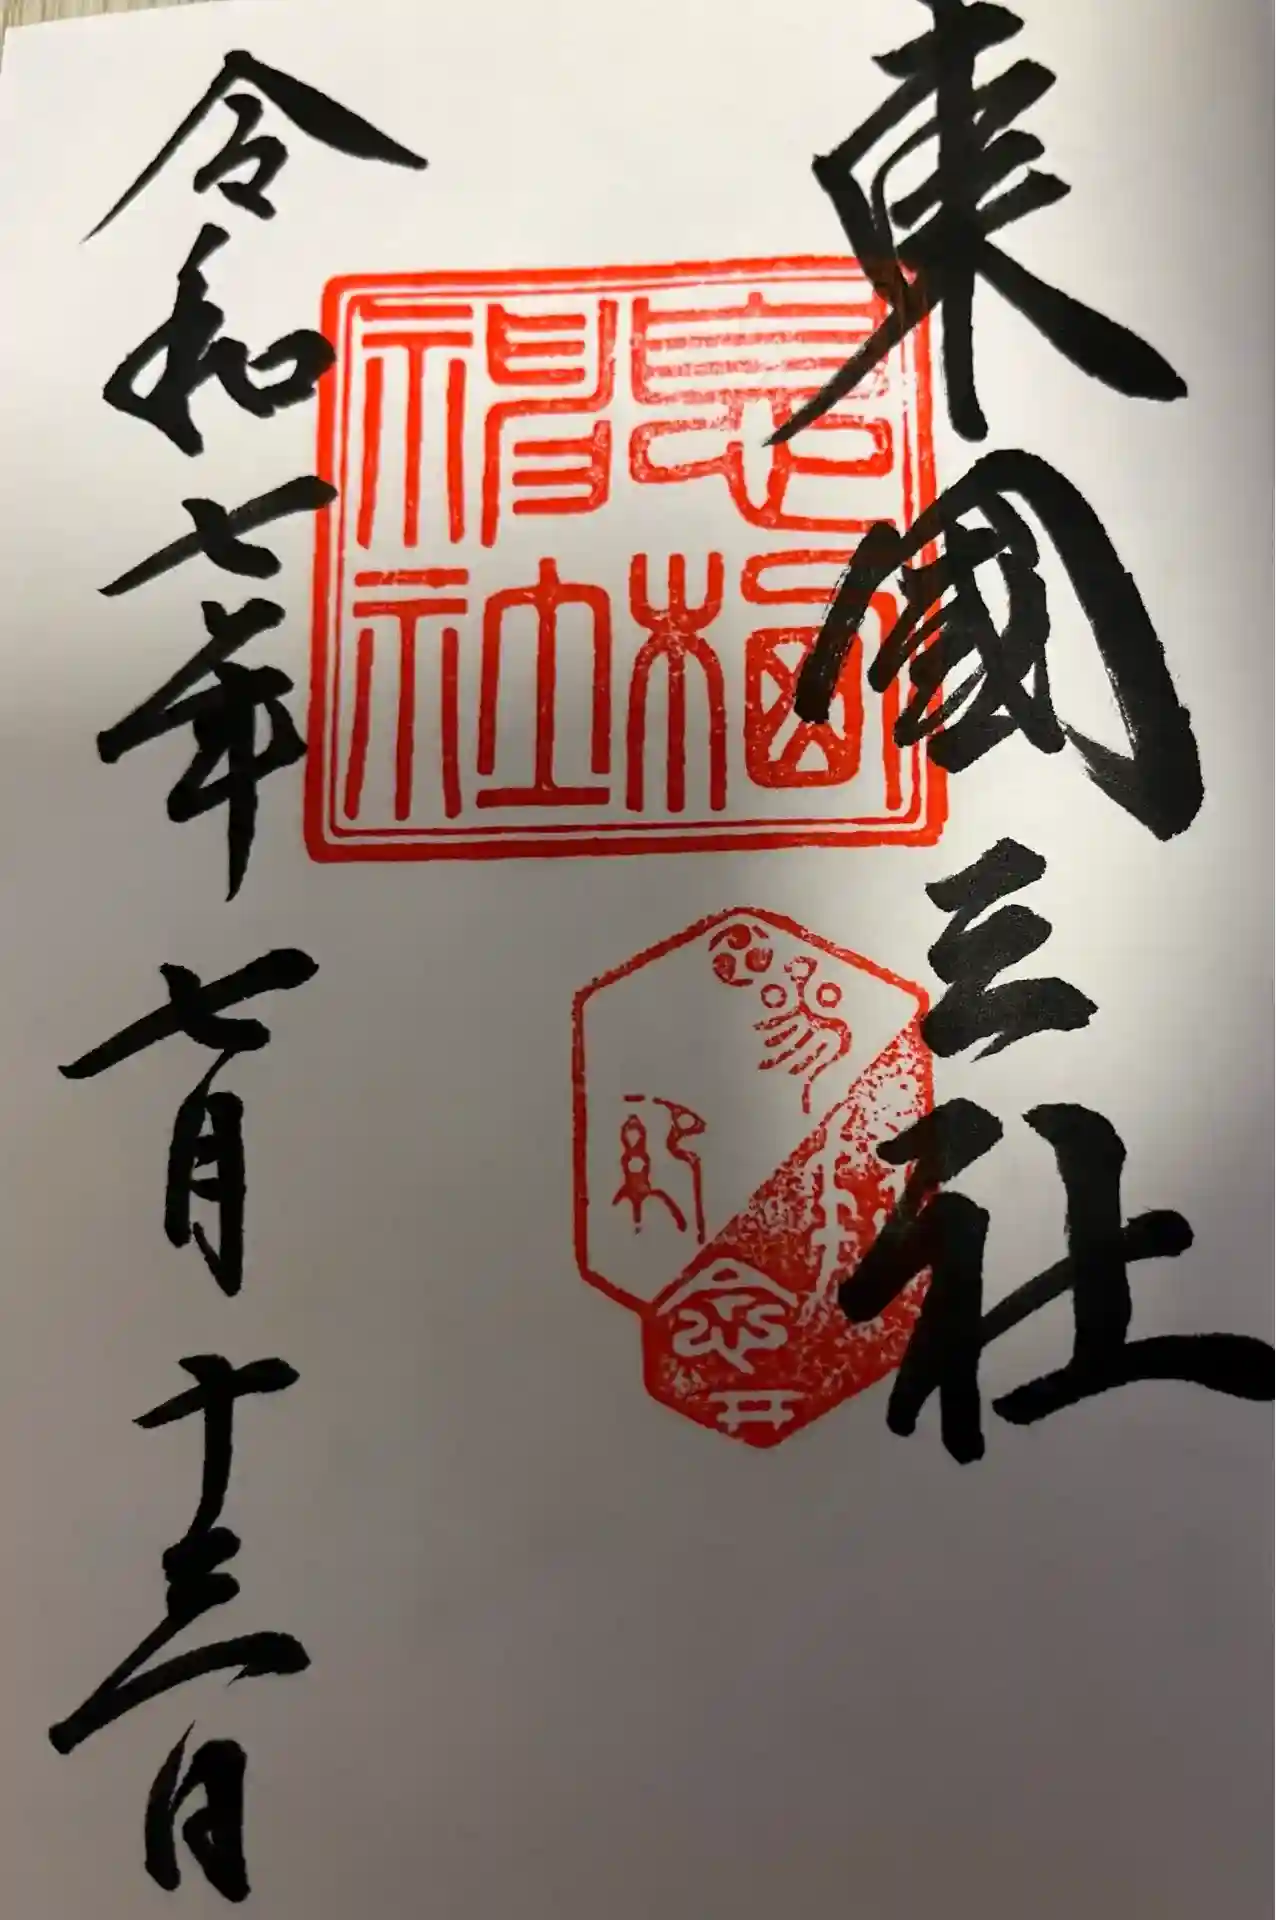 東國三社
息栖神社
令和七年七月十三日